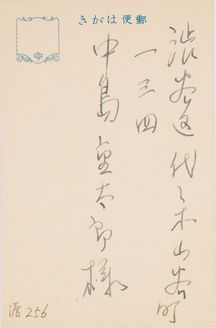 郵便はがき
渋谷区代々木山谷町
一三四
中島重太郎様
渡256